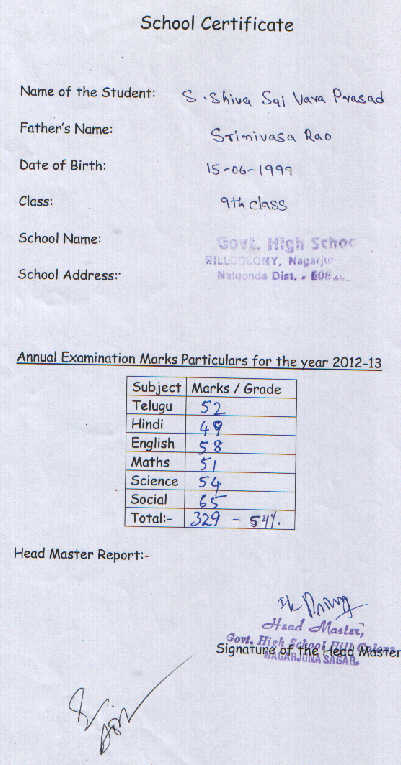 School Certificate
Name of the Student: S. Shiva Sai Vara Prasad
Father's Name: Srinivasa Rao
Date of Birth: 15-06-1999
Class: 9th class
School Name: Govt. High Schoo
School Address:- HILLCOLONY, Nagarju
Nalgonda Dist. - 508
Annual Examination Marks Particulars for the year 2012-13
Subject Marks / Grade
Telugu 52
Hindi 49
English 58
Maths 51
Science 54
Social 65
Total:- 329 - 54%.
Head Master Report:-
Head Master,
Govt. High School Hill Colony
Signature of the Head Master
NAGARJUNA SAGAR.